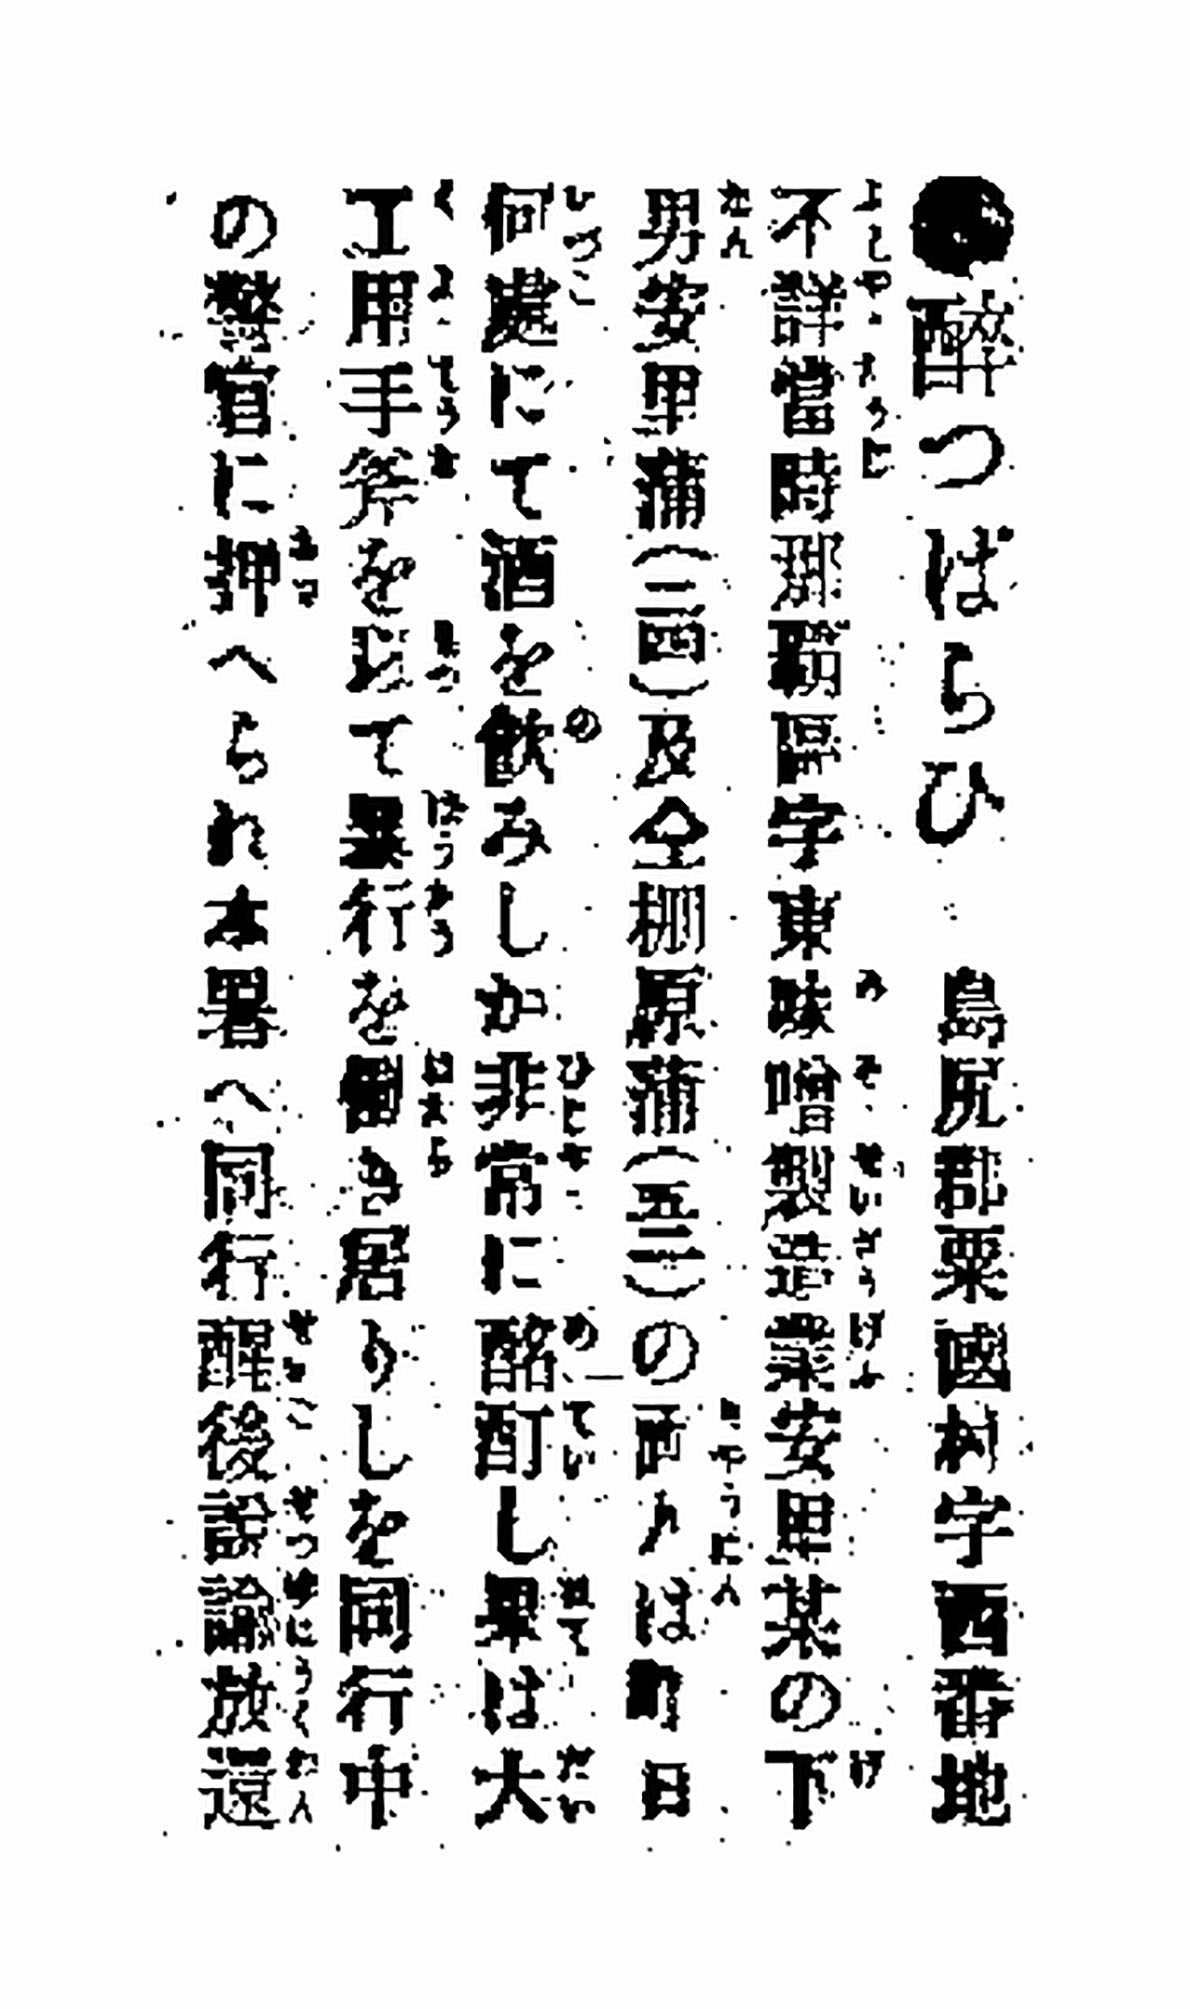 ●醉つぱらひ　島尻郡粟國村字西番地
不詳當時那覇區字東味噌製造業安里某の下
男安里蒲(三四)及仝棚原蒲(五三)の両人は昨日
何處にて酒を飲みしか非常に酩酊し果は大
工用手斧を以て暴行を働き居りしを同行中
の警官に押へられ本署へ同行醒後説諭放還